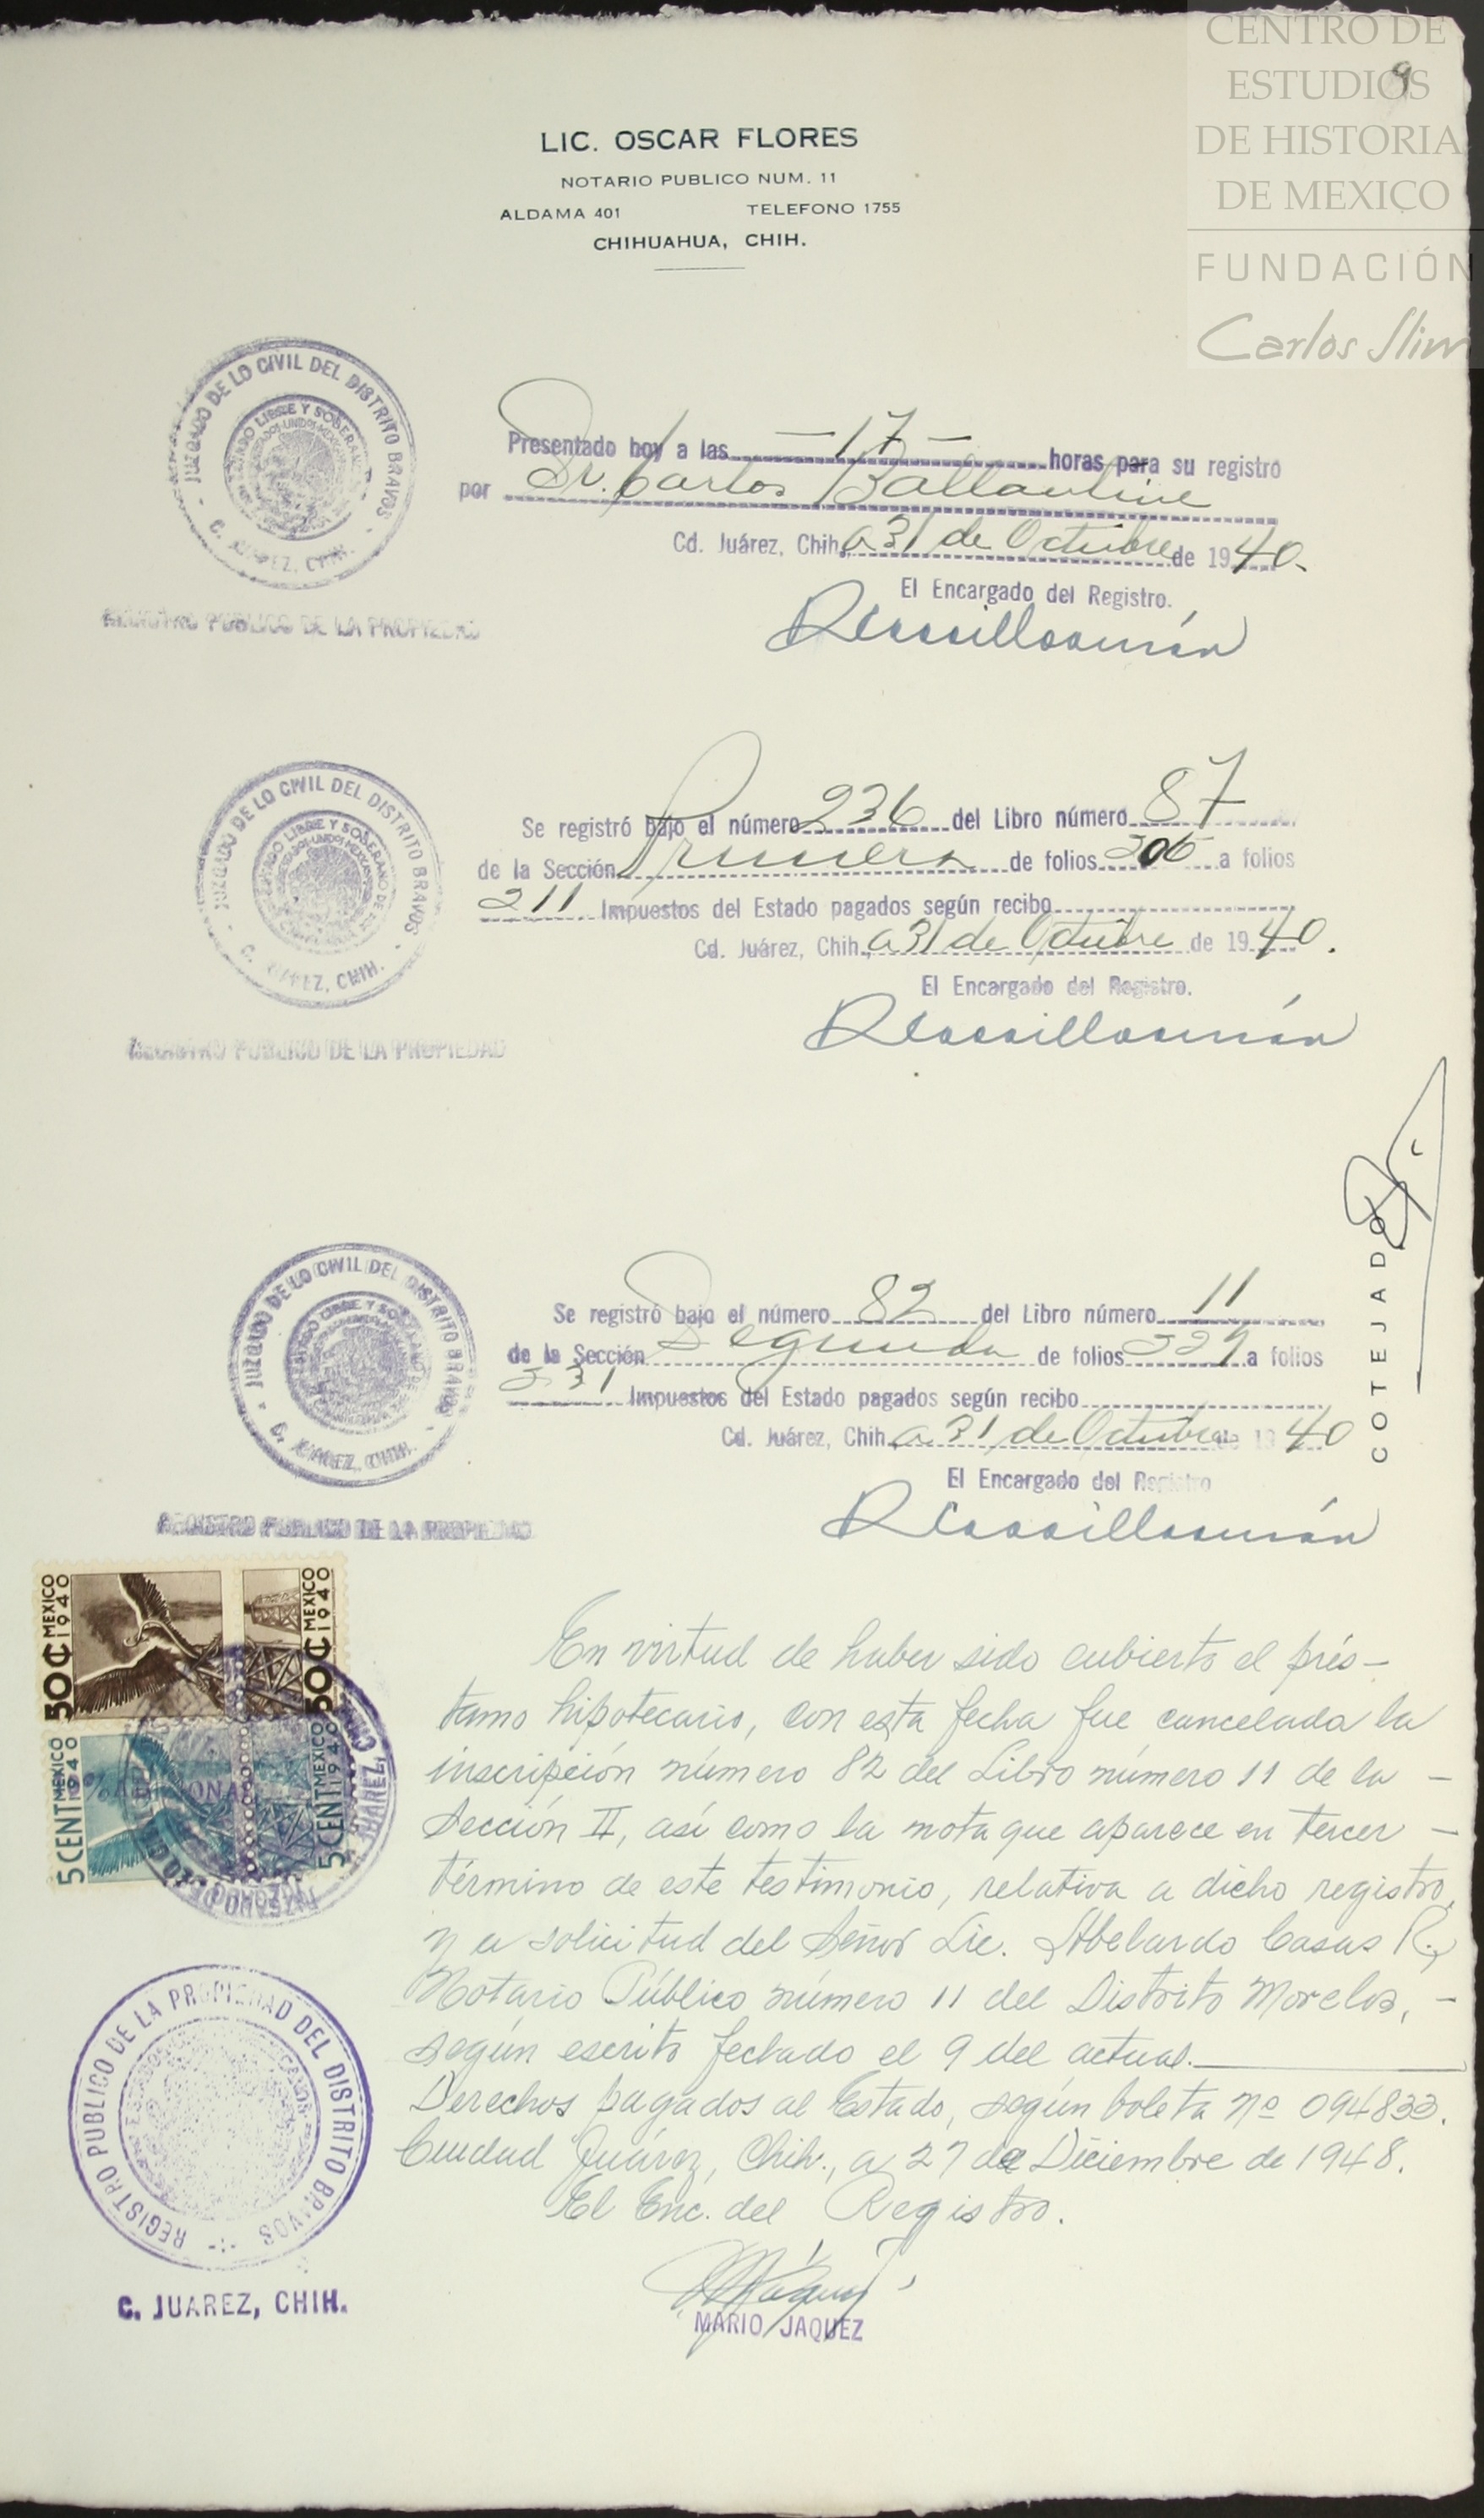 CENTRO DE
ESTUDIOS
DE HISTORIA
DE MEXICO
FUNDACIÓN
Carlos Slim
9
LIC. OSCAR FLORES
NOTARIO PUBLICO NUM. 11
ALDAMA 401 TELEFONO 1755
CHIHUAHUA, CHIH.
JUZGADO DE LO CIVIL DEL DISTRITO BRAVOS
C. JUAREZ, CHIH.
REGISTRO PUBLICO DE LA PROPIEDAD
Presentado hoy a las — 17 — horas para su registro
por Sr. Carlos Ballantine
Cd. Juárez, Chih., a 31 de Octubre de 1940.
El Encargado del Registro.
JUZGADO DE LO CIVIL DEL DISTRITO BRAVOS
C. JUAREZ, CHIH.
REGISTRO PUBLICO DE LA PROPIEDAD
Se registró bajo el número 236 del Libro número 87
de la Sección Primera de folios a folios
211 Impuestos del Estado pagados según recibo
Cd. Juárez, Chih., a 31 de Octubre de 1940.
El Encargado del Registro.
COTEJADO
JUZGADO DE LO CIVIL DEL DISTRITO BRAVOS
C. JUAREZ, CHIH.
REGISTRO PUBLICO DE LA PROPIEDAD
Se registró bajo el número 82 del Libro número 11
de la Sección Segunda de folios a folios
331 Impuestos del Estado pagados según recibo
Cd. Juárez, Chih. a 31 de Octubre de 1940
El Encargado del Registro
50¢ MEXICO 1940
50¢ MEXICO 1940
5 CENT MEXICO 1940
5 CENT MEXICO 1940
En virtud de haber sido cubierto el prés-
tamo hipotecario, con esta fecha fue cancelada la
inscripción número 82 del Libro número 11 de la —
Sección II, así como la nota que aparece en tercer —
término de este testimonio, relativa a dicho registro,
y a solicitud del Señor Lic. Abelardo Casas R.,
Notario Público número 11 del Distrito Morelos, —
según escrito fechado el 9 del actual.
Derechos pagados al Estado, según boleta Nº 094833.
Ciudad Juárez, Chih., a 27 de Diciembre de 1948.
El Enc. del Registro.
MARIO JAQUEZ
REGISTRO PUBLICO DE LA PROPIEDAD DEL DISTRITO BRAVOS
C. JUAREZ, CHIH.